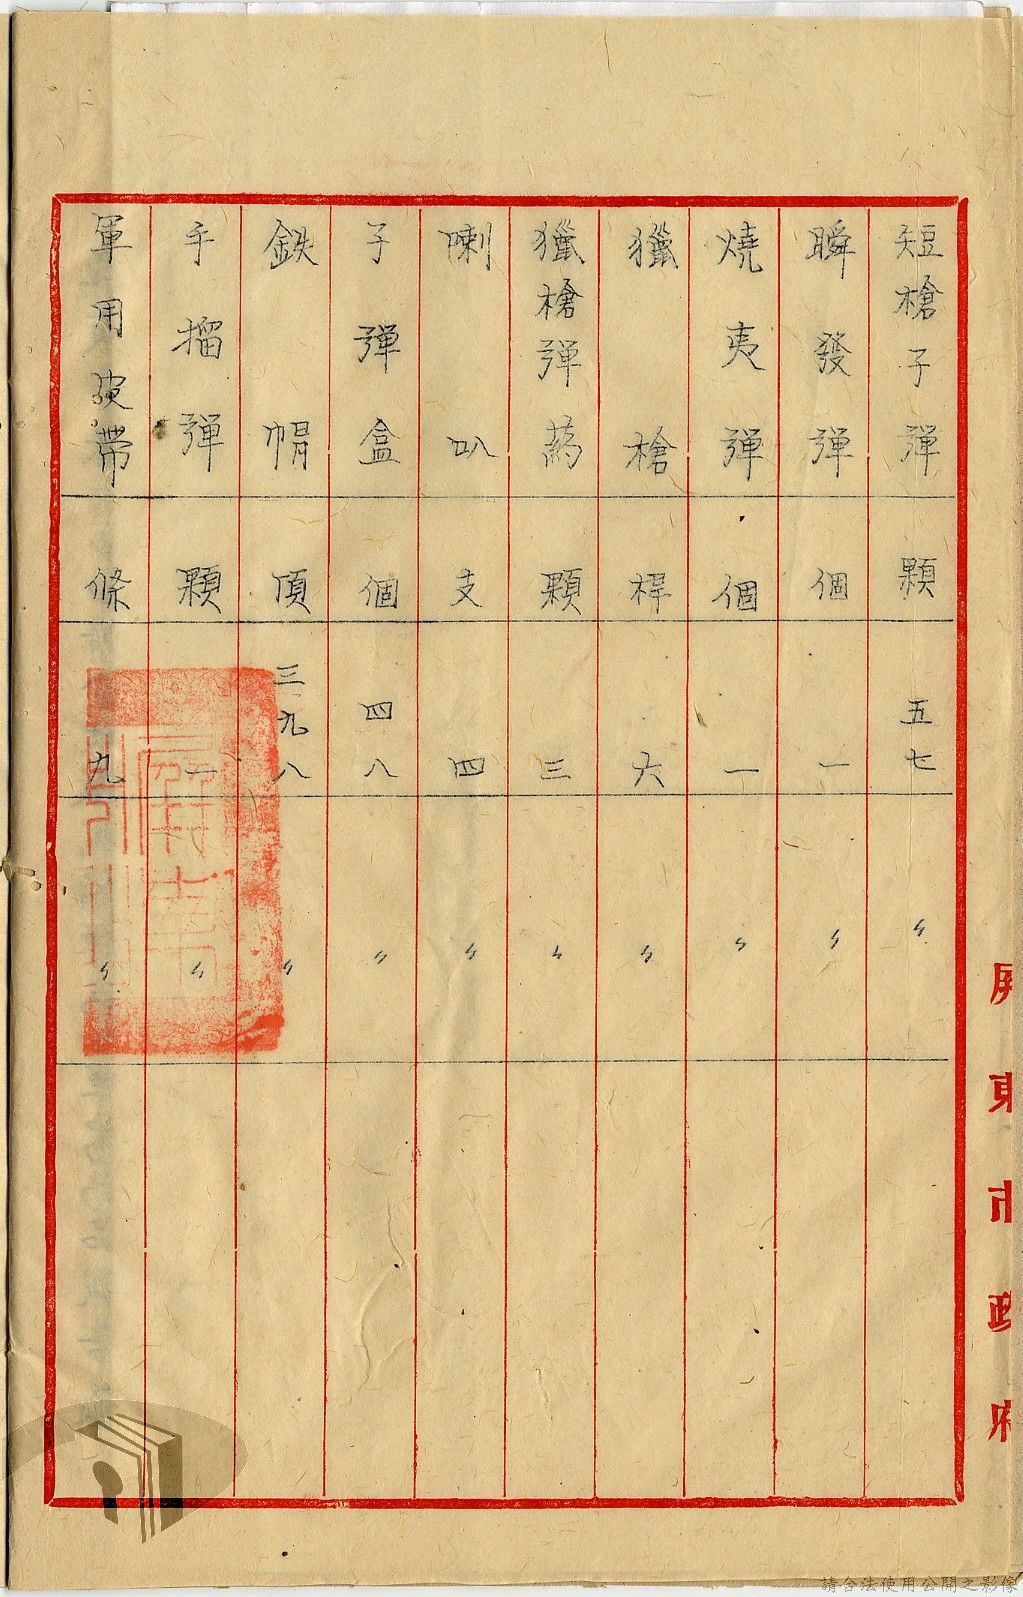 短槍子彈 顆 五七 〃
瞬發彈 個 一 〃
燒夷彈 個 一 〃
獵槍 桿 六 〃
獵槍彈葯 顆 三 〃
喇叭 支 四 〃
子彈盒 個 四八 〃
鉄帽 頂 三九八 〃
手擂彈 顆 一 〃
軍用皮帶 條 九 〃
屏東市政府
請合法使用公開之影像